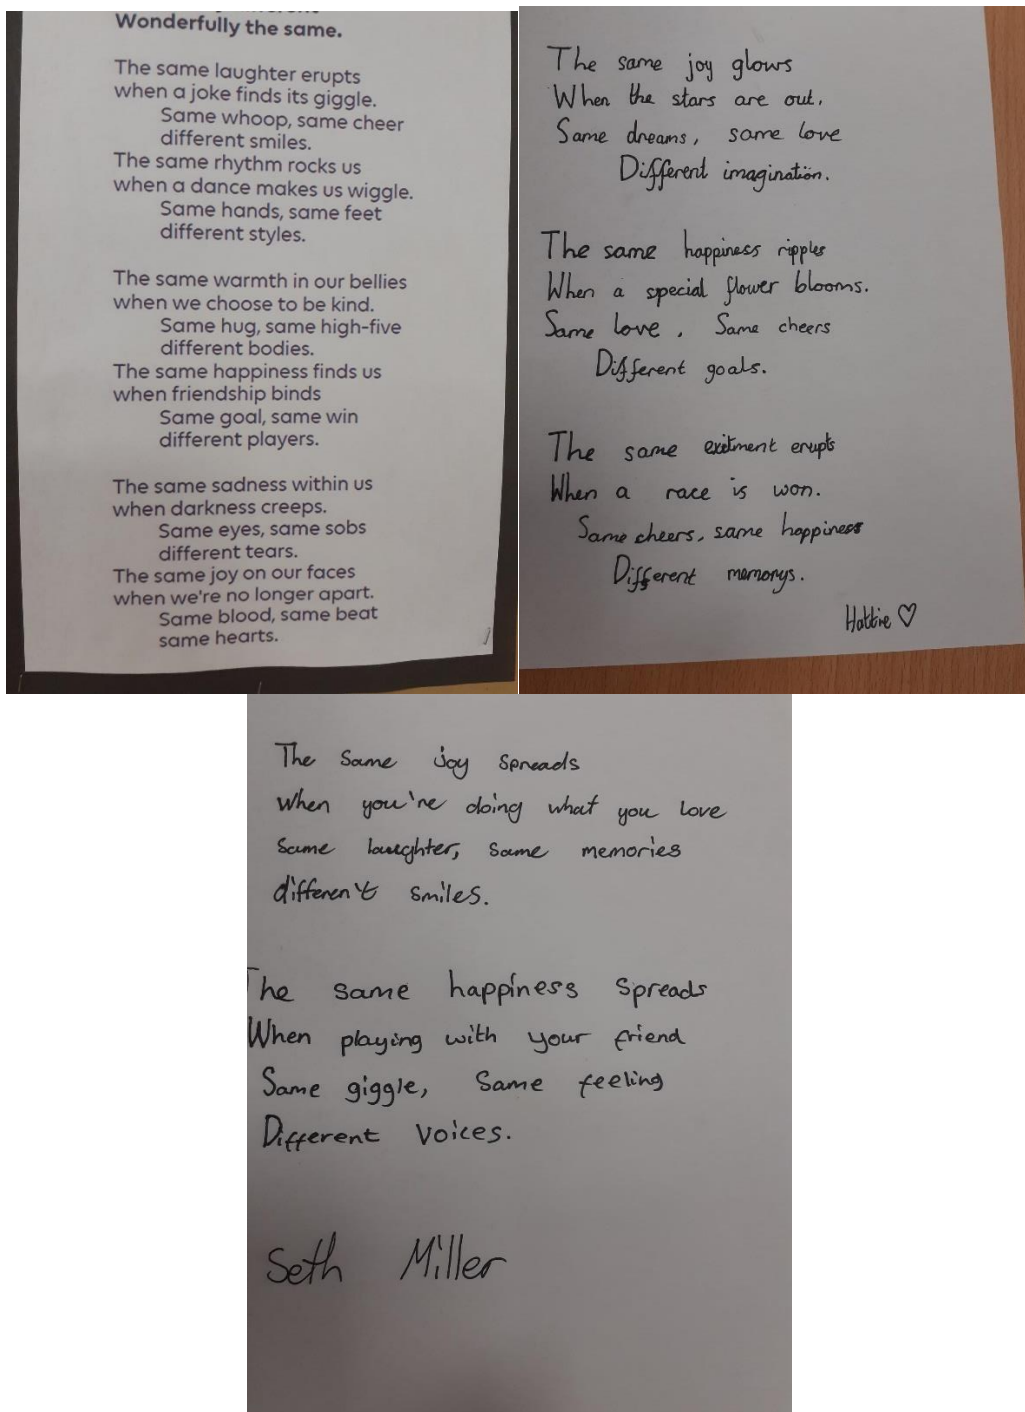 Wonderfully the same.
The same laughter erupts
when a joke finds its giggle.
Same whoop, same cheer
different smiles.
The same rhythm rocks us
when a dance makes us wiggle.
Same hands, same feet
different styles.
The same warmth in our bellies
when we choose to be kind.
Same hug, same high-five
different bodies.
The same happiness finds us
when friendship binds
Same goal, same win
different players.
The same sadness within us
when darkness creeps.
Same eyes, same sobs
different tears.
The same joy on our faces
when we're no longer apart.
Same blood, same beat
same hearts.
The same joy glows
When the stars are out.
Same dreams, same love
Different imagination.
The same happiness ripples
When a special flower blooms.
Same love, Same cheers
Different goals.
The same exitment erupts
When a race is won.
Same cheers, same happiness
Different memorys.
Hattie ♡
The same joy spreads
When you're doing what you love
same laughter, same memories
different smiles.
The same happiness spreads
When playing with your friend
Same giggle, Same feeling
Different voices.
Seth Miller